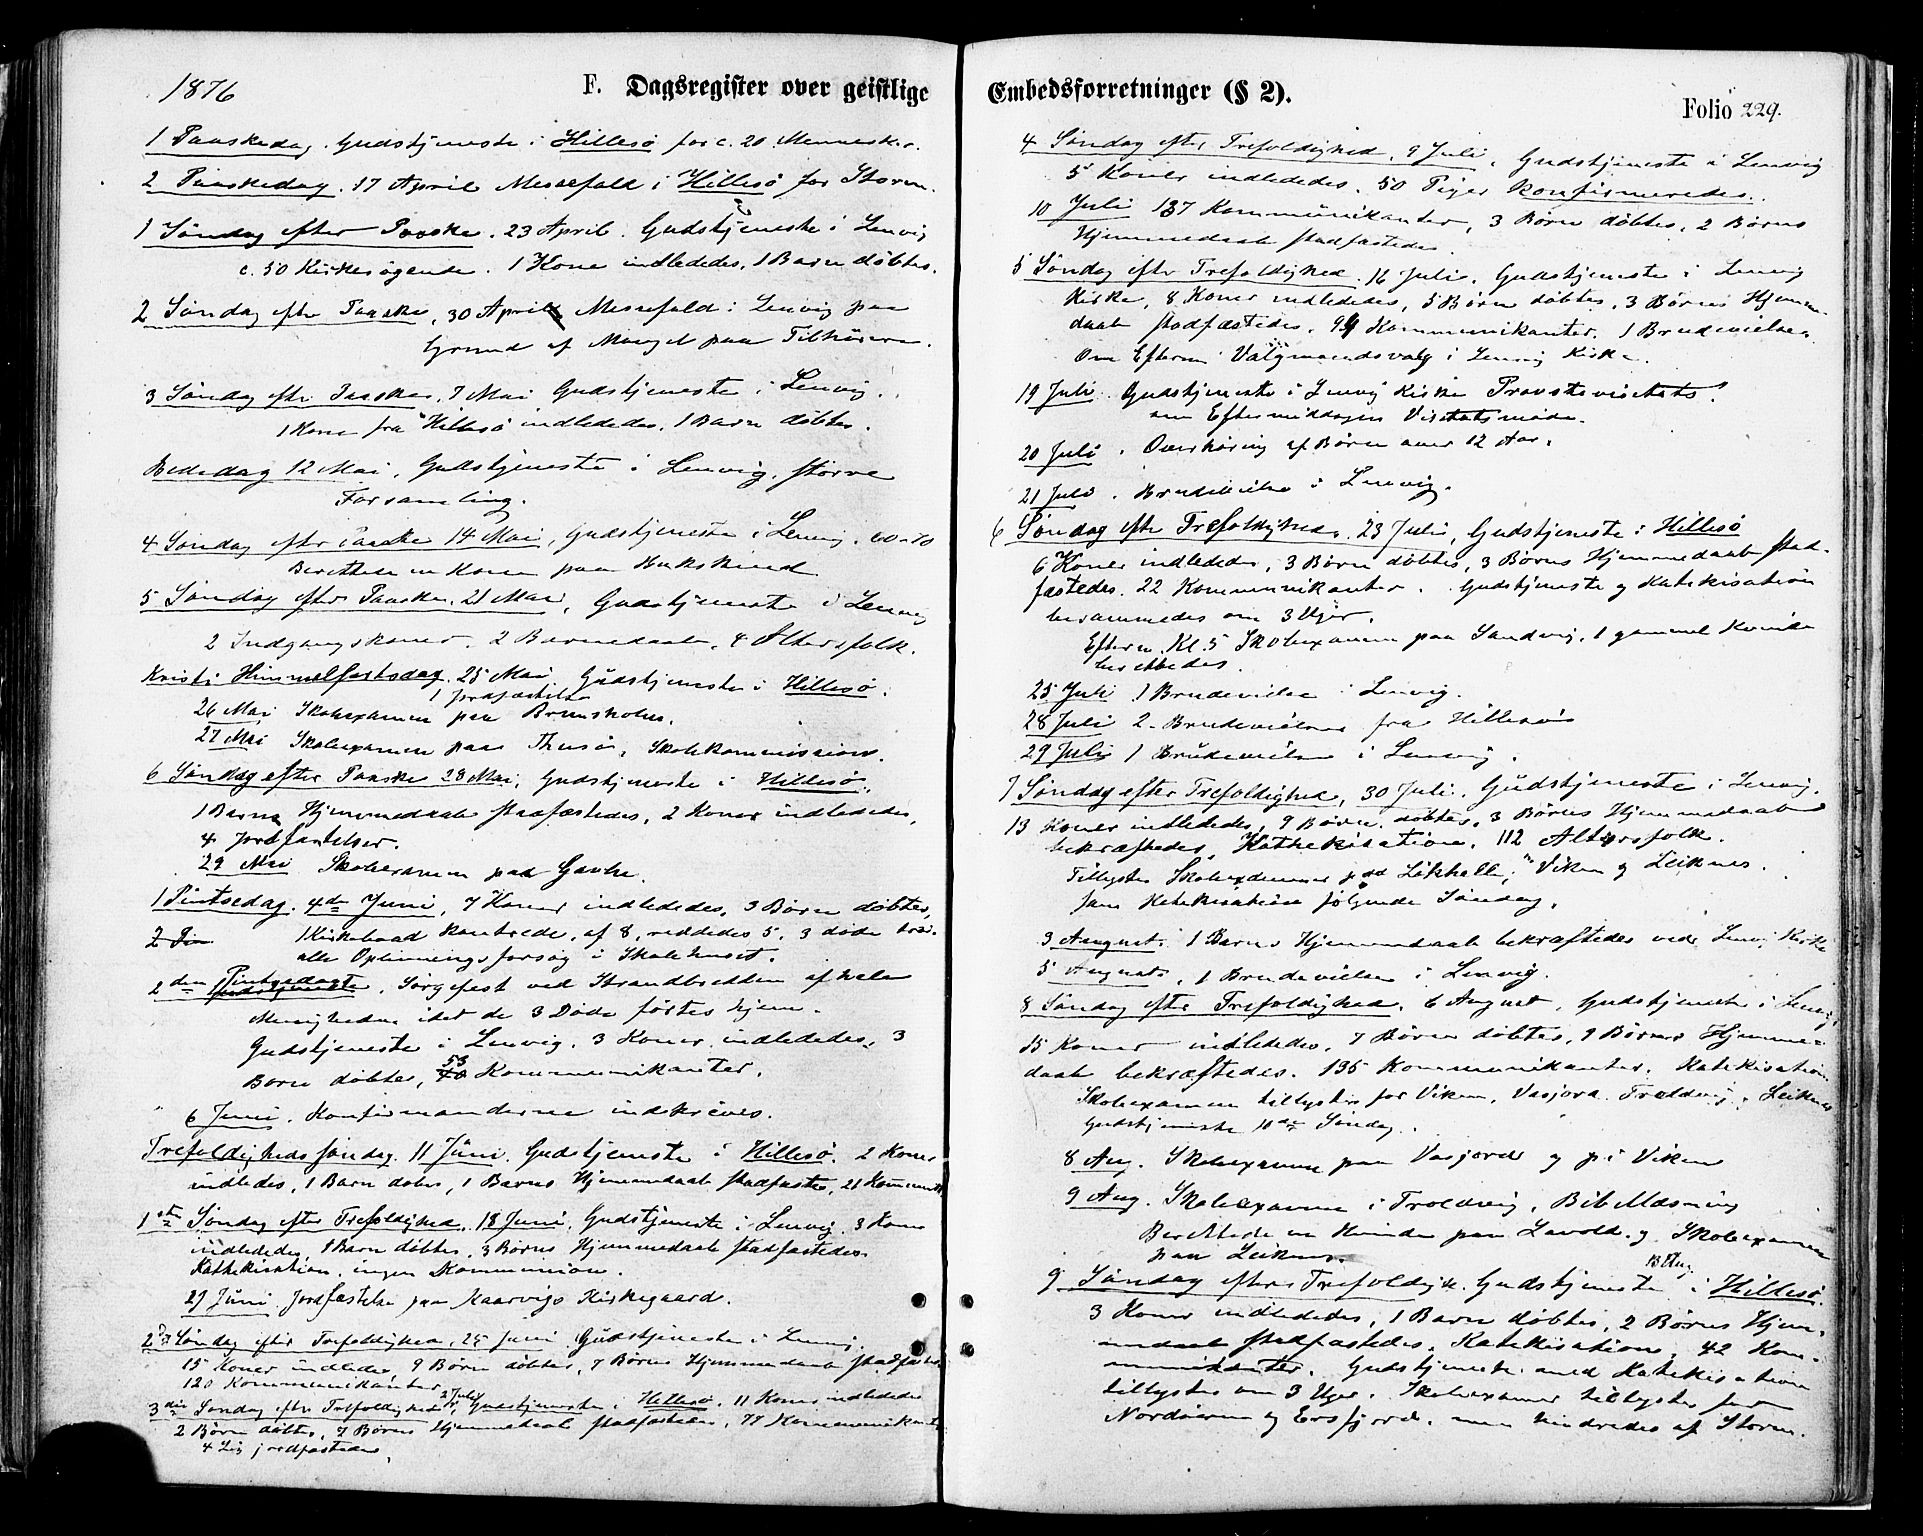 1876
F. Dagsregister over geistlige
1 Paaskedag. Gudstjeneste i Hillesö for c. 20 Mennesker.
2 Paaskedag. 17 April Messefald i Hillesö for Storm.
1 Söndag efter Paaske. 23 April. Gudstjeneste i Lenvig
c. 50 Kirkesøgende. 1 Kone indlededes, 1 Barn döbtes.
2 Söndag efter Paaske, 30 April Messefald i Lenvig paa
Grund af Mangel paa Tilhörere.
3 Söndag eftr Paaske, 7 Mai Gudstjeneste i Lenvig.
1 Kone fra Hillesö indlededes, 1 Barn döbtes.
Bededag 12 Mai, Gudstjeneste i Lenvig, större
Forsamling.
4 Söndag efter Paaske 14 Mai, Gudstjeneste i Lenvig. 60-70
en Kone paa
5 Söndag efter Paaske, 21 Mai, Gudstjeneste i Lenvig
2 Indgangskoner, 2 Barnedaab, 4 Altersfolk.
Kristi Himmelfartsdag. 25 Mai, Gudstjeneste i Hillesö.
26 Mai Skoleexamen paa
27 Mai Skoleexamen paa Skolekommission.
6 Söndag efter Paaske 28 Mai, Gudstjeneste i Hillesö,
1 Barns Hjemmedaab stadfæstedes, 2 Koner indlededes,
4 Jordfæstelser.
29 Mai Skoleexamen paa
1 Pintsedag. 4de Juni, 7 Koner indlededes, 3 Börn döbtes,
2 Pin 1 Kirkebaad kantrede, af 8, reddedes 5, 3 döde
alle Oplivningsforsög i Skolehuset.
2den Pintsedag, Sörgefest ved Strandbredden af hele
Menigheden idet de 3 Döde förtes hjem.
Gudstjeneste i Lenvig. 3 Koner indlededes, 3
Börn döbtes, 53 Kommunikanter.
6 Juni. Konfirmanderne indskreves.
Trefoldighedssöndag. 11 Juni. Gudstjeneste i Hillesö. 2 Koner
indledes, 1 Barn döbes, 1 Barns Hjemmedaab stadfæstes, 21
1ste Söndag efter Trefoldighed. 18 Juni. Gudstjeneste i Lenvig. 3 Koner
indlededes, 1 Barn döbtes, 3 Börns Hjemmedaab stadfæstedes.
Kathekisation. ingen Kommunion.
Juni Jordfæstelse paa Kaarvigs Kirkegaard.
2den Söndag efter Trefoldighed, 25 Juni Gudstjeneste i Lenvig.
15 Koner indledes 9 Börn döbtes, 7 Börns Hjemmedaab
120 Kommunikanter
3die Söndag eftr Trefoldighed, 2 Juli, Gudstjeneste i Hillesö, 11 Koner indledes
2 Börn döbtes, 7 Börns Hjemmedaab stadfæstedes, 77 Kommunikanter
4 Lig jordfæstedes,
Embedsforretninger (§ 2).
Folio 229.
4 Söndag eftr Trefoldighed, 9 Juli, Gudstjeneste i Lenvig
5 Koner indlededes. 50 Piger konfirmeredes.
10 Juli 137 Kommunikanter, 3 Börn döbtes, 2 Börns
Hjemmedaab stadfæstedes
5 Söndag eftr Trefoldighed. 16 Juli. Gudstjeneste i Lenvig
Kirke, 8 Koner indlededes, 5 Börn döbtes, 3 Börns Hjem-
daab stadfæstedes. Kommunikanter. 1 Brudevielse.
Om Efterm. Valgmandsvalg i Lenvig Kirke.
19 Juli. Gudstjeneste i Lenvig Kirke Provstevisitats.
om Eftermiddagen Visitatsmöde.
20 Juli. Overhöring af Börn over 12 Aar.
21 Juli. Brudevielse i Lenvig.
6 Söndag eftr Trefoldighed. 23 Juli, Gudstjeneste i Hillesö
6 Koner indlededes, 3 Börn döbtes, 3 Börns Hjemmedaab stad-
fæstedes. 22 Kommunikanter. Gudstjeneste og Katekisation
berammedes om 3 Uger.
Efterm. Kl. 5 Skoleexamen paa Sandvig. 1 gammel Kvinde
berettedes.
25 Juli 1 Brudevielse i Lenvig.
28 Juli 2 Brudevielser fra Hillesö
29 Juli 1 Brudevielse i Lenvig.
7 Söndag efter Trefoldighed, 30 Juli. Gudstjeneste i Lenvig.
13 Koner indlededes, 9 Börn döbtes, 3 Börns Hjemmedaab
bekræftedes, Kathekisation, 112 Altersfolk.
Tillystes Skoleexamener paa Viken og Leiknes.
Katekisation fölgende Söndag.
3 August. 1 Barns Hjemmedaab bekræftedes ved Lenvig Kirke
5 August, 1 Brudevielse i Lenvig.
8 Söndag eftr Trefoldighed. 6 August, Gudstjeneste i Lenvig,
15 Koner indlededes, 7 Börn döbtes, 9 Börns Hjemme-
daab bekræftedes. 135 Kommunikanter. Katekisation
Skoleexamen tillystes for Viken, Vasjord. Troldvig, Leiknes
Gudstjeneste 10de Söndag.
8 Aug. Skoleexamen paa Vasjord og på Viken
9 Aug. Skoleexamen i Troldvig, Bibellæsning
Berettede en Kvinde paa Lavold. og Skoleexamen
paa Leiknes.
13 Aug.
9 Söndag efter Trefoldigh. Gudstjeneste i Hillesö.
3 Koner indlededes, 1 Barn döbtes, 2 Börns Hjem-
medaab stadfæstedes. Katekisation, 42 Kom-
munikanter. Gudstjeneste med Katekisation
tillystes om 3 Uger. Skoleexamen tillystes for
og Ersfjord. men hindredes af Storm.